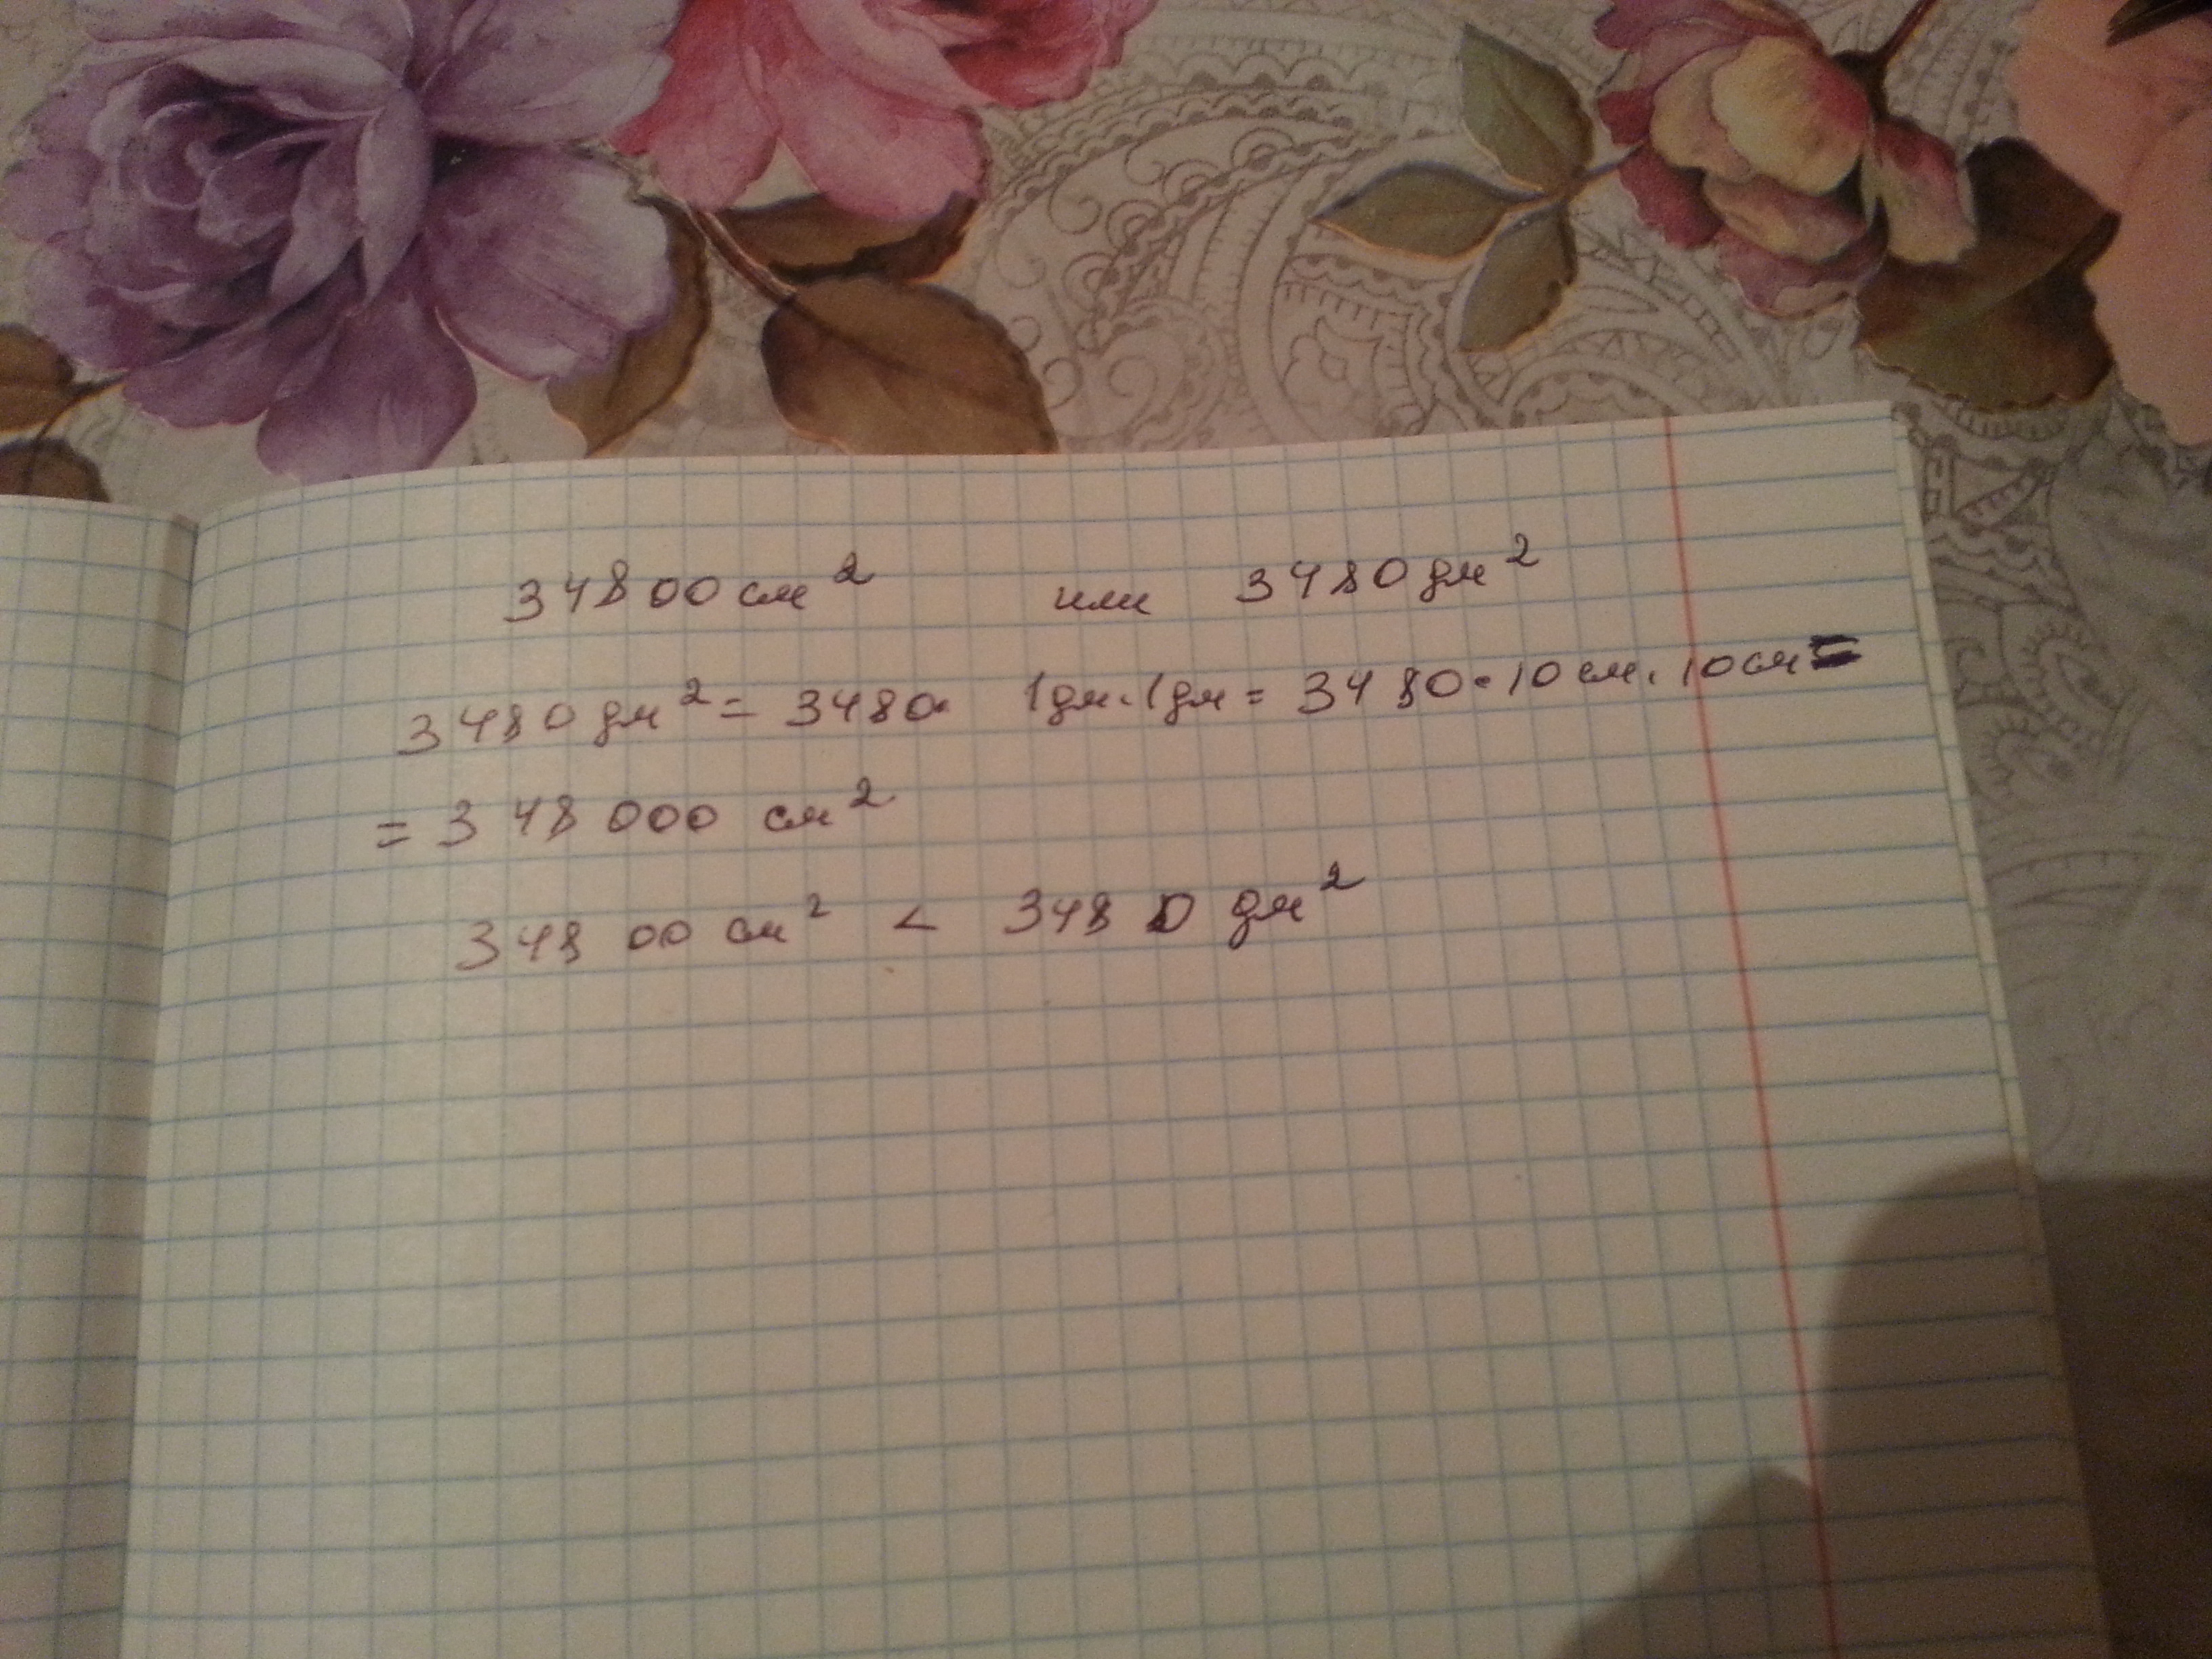 34800 см² или 3480 дм²
3480 дм² = 3480· 1дм·1дм = 3480·10см·10см=
= 348 000 см²
348 00 см² < 3480 дм²